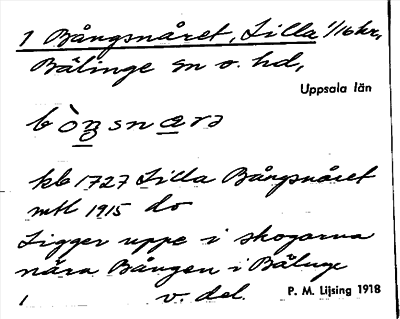 1 Bångsnåret, Lilla 1/16 hr,
Bälinge sn o. hd,
Uppsala län
bòngsnarə
kb 1727 Lilla Bångsnåret
mtl 1915 do
Ligger uppe i skogarna
nära Bången i Bälinge
1 v. del.
P. M. Lijsing 1918